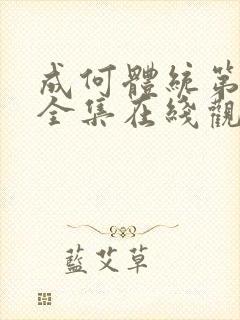 成何體統第
全集在綫觀
藍艾草